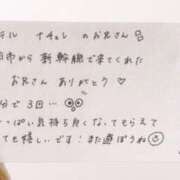 テル ナチュレ のお兄さん
市から 新幹線で来てくれた
お兄さん ありがとう ♡
分で3回…
っぱい気持ち良くなってもらえて
ても嬉しいです！また遊ぼうね